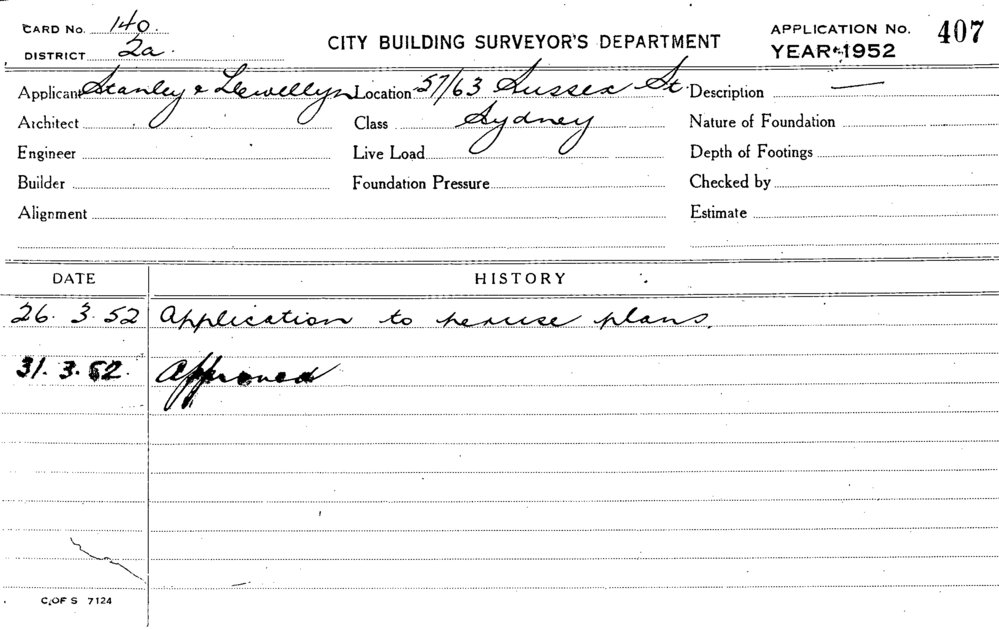 CARD No. 140.
DISTRICT 2a.
CITY BUILDING SURVEYOR'S DEPARTMENT
APPLICATION No. 407
YEAR 1952
Applicant Stanley & Llewellyn Location 57/63 Sussex St. Description —
Architect Class Sydney Nature of Foundation
Engineer Live Load Depth of Footings
Builder Foundation Pressure Checked by
Alignment Estimate
DATE HISTORY
26. 3. 52 Application to peruse plans.
31. 3. 52. Approved
C. OF S 7124